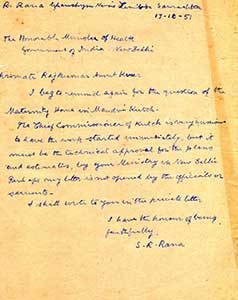 S. Rana
17-12-51
The Honorable Minister of Health
Government of India - New Delhi
Rajkumari Amrit Kaur
I beg to remind again for the question of the
Maternity Home in Mandvi Kutch.
The Chief Commissioner of Kutch is very anxious
to have the work started immediately, but it
must be the technical approval for the plans
and estimates, by your Ministry in New Delhi
Perhaps my letter is not opened by the officials or
servants.
I shall write to you in the private letter
I have the honour of being,
faithfully,
S. R. Rana